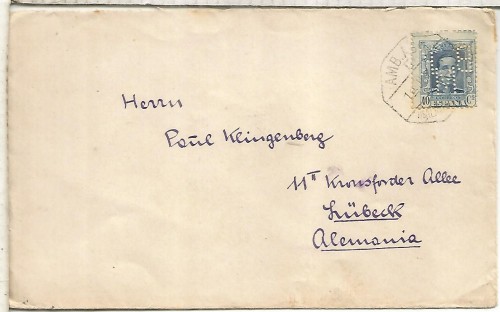 AMB.
40 Cs
ESPAÑA
Herrn
Paul Klingenberg
11II Kronsforder Allee
Lübeck
Alemania